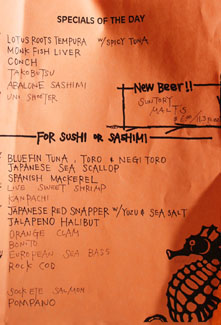 SPECIALS OF THE DAY
LOTUS ROOTS TEMPURA W/SPICY TUNA
MONK FISH LIVER
CONCH
TAKOBUTSU
ABALONE SASHIMI
UNI SHOOTER
New Beer!!
SUNTORY
MALTS
FOR SUSHI OR SASHIMI
BLUEFIN TUNA, TORO & NEGI TORO
JAPANESE SEA SCALLOP
SPANISH MACKEREL
LIVE SWEET SHRIMP
KANPACHI
JAPANESE RED SNAPPER W/YUZU & SEA SALT
JALAPENO HALIBUT
ORANGE CLAM
BONITO
EUROPEAN SEA BASS
ROCK COD
SOCKEYE SALMON
POMPANO